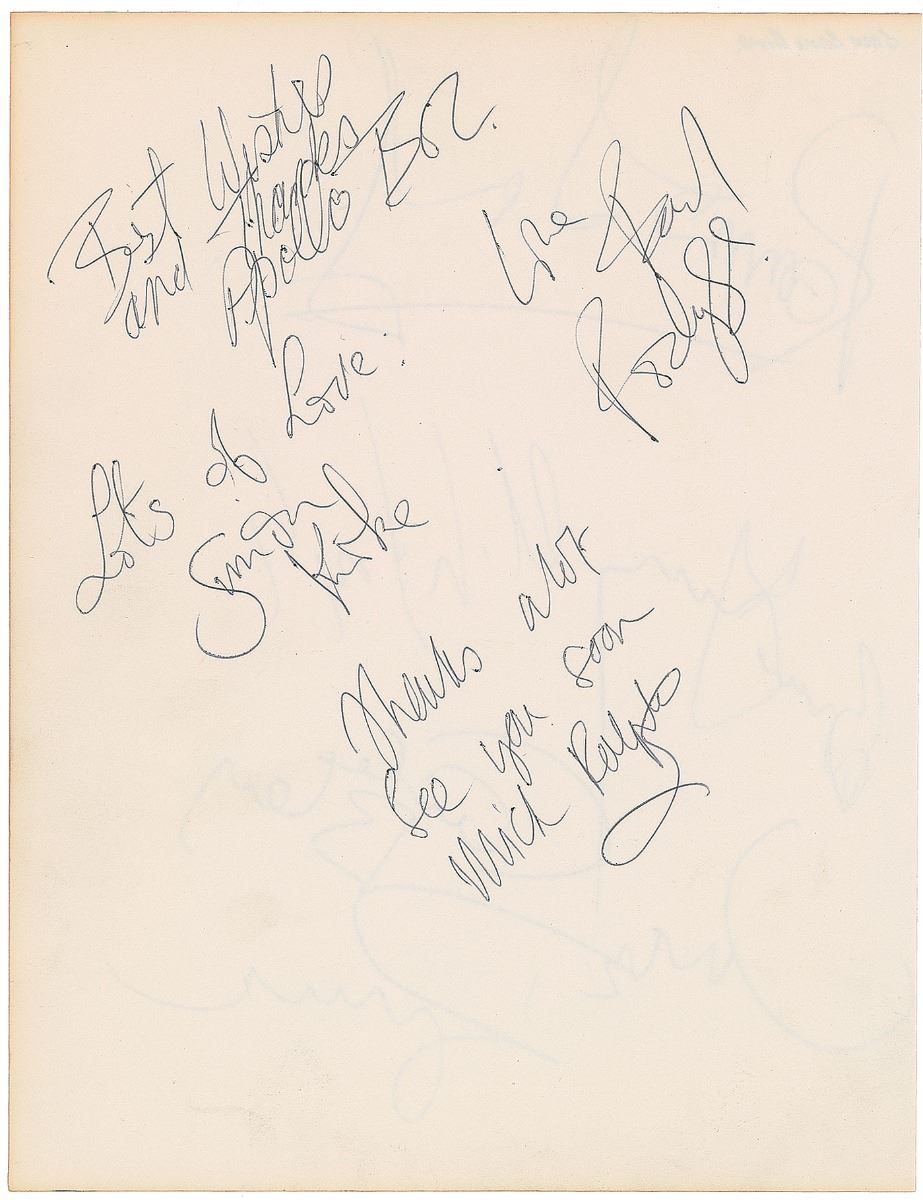 Best Wishes
and Thanks
Apollo Boz.
Love Paul
Rodgers
Lots of Love.
Simon
Kirke
Thanks alot
See you soon
Mick Ralphs